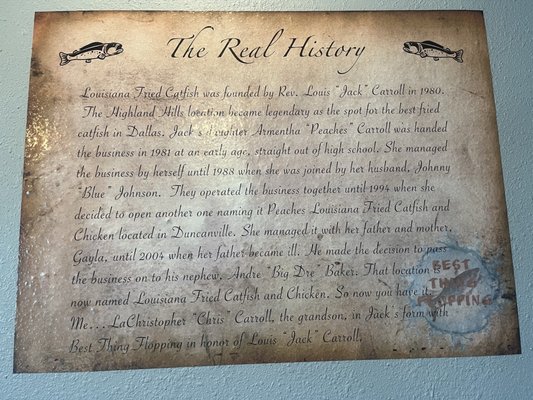 The Real History
Louisiana Fried Catfish was founded by Rev. Louis "Jack" Carroll in 1980.
The Highland Hills location became legendary as the spot for the best fried
catfish in Dallas. Jack's daughter Armentha "Peaches" Carroll was handed
the business in 1981 at an early age, straight out of high school. She managed
the business by herself until 1988 when she was joined by her husband, Johnny
"Blue" Johnson. They operated the business together until 1994 when she
decided to open another one naming it Peaches Louisiana Fried Catfish and
Chicken located in Duncanville. She managed it with her father and mother,
Gayla, until 2004 when her father became ill. He made the decision to pass
the business on to his nephew, Andre "Big Dre" Baker. That location is
now named Louisiana Fried Catfish and Chicken. So now you have it
Me... LaChristopher "Chris" Carroll, the grandson, in Jack's form with
Best Thing Flopping in honor of Louis "Jack" Carroll.
BEST
THING
FLOPPING